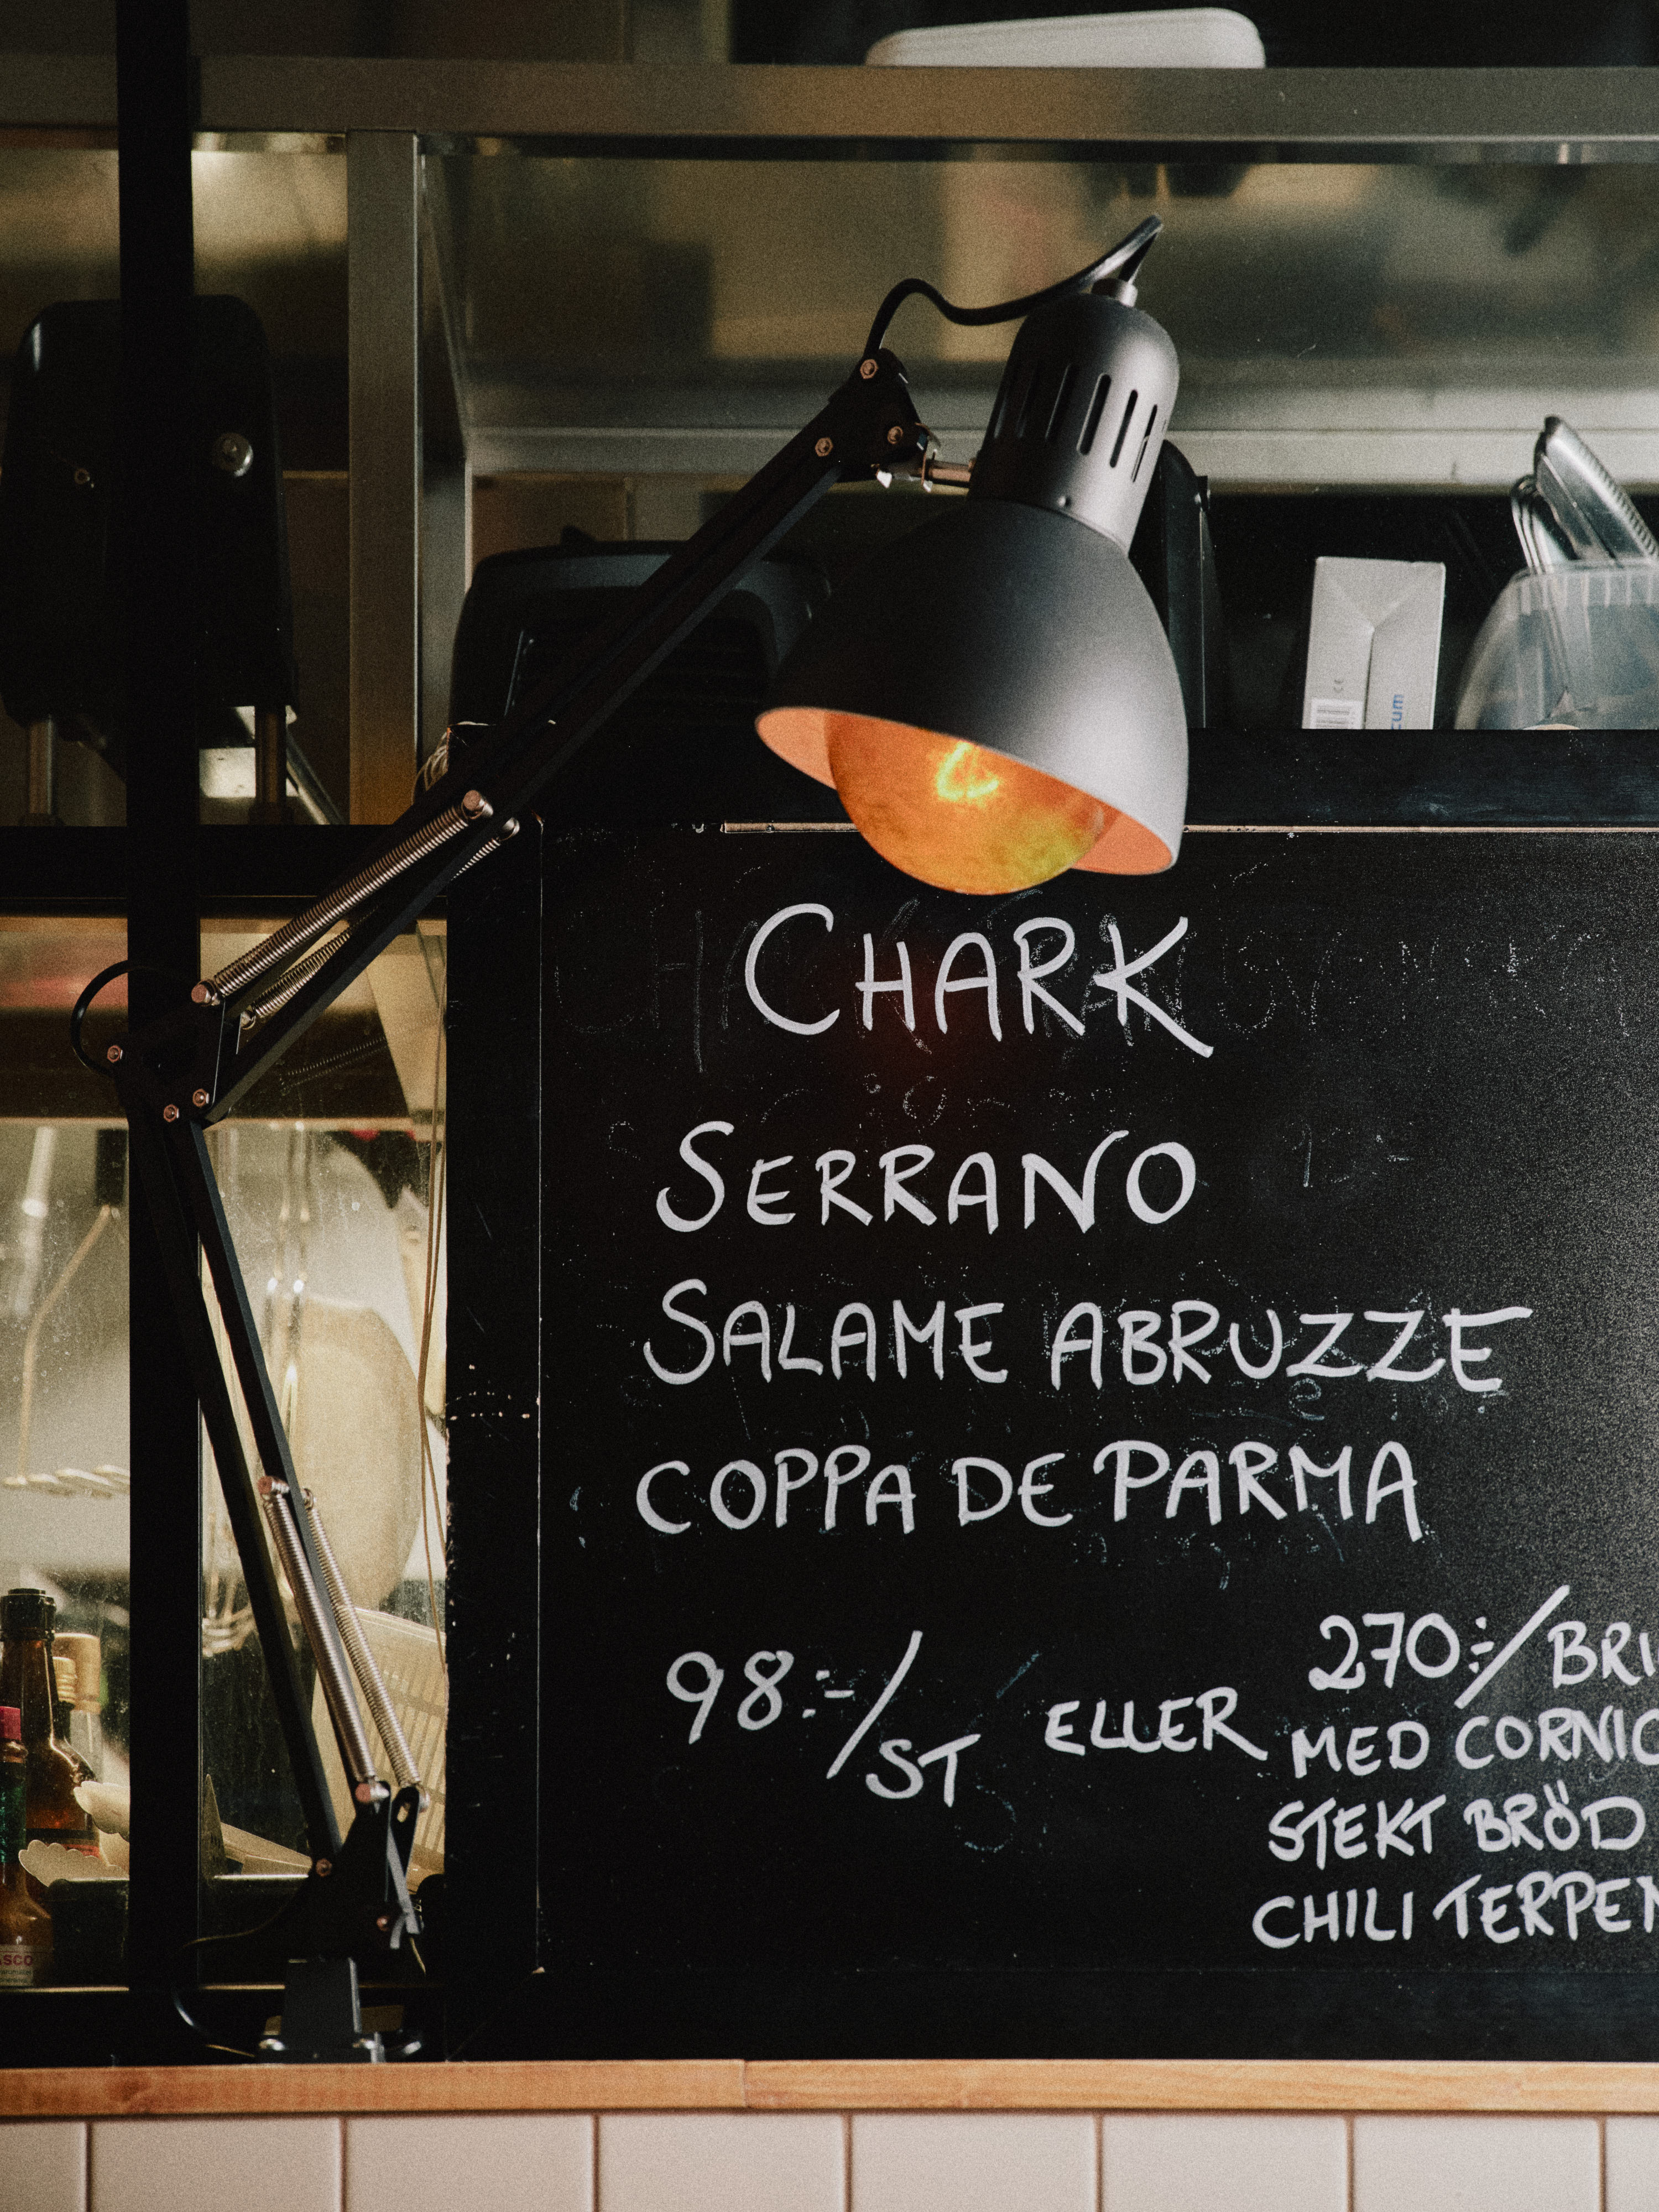 CHARK
SERRANO
SALAME ABRUZZE
COPPA DE PARMA
98:-/ST ELLER
270:-/BRI
MED CORNIC
STEKT BRÖD
CHILI TERPEN
ASCO